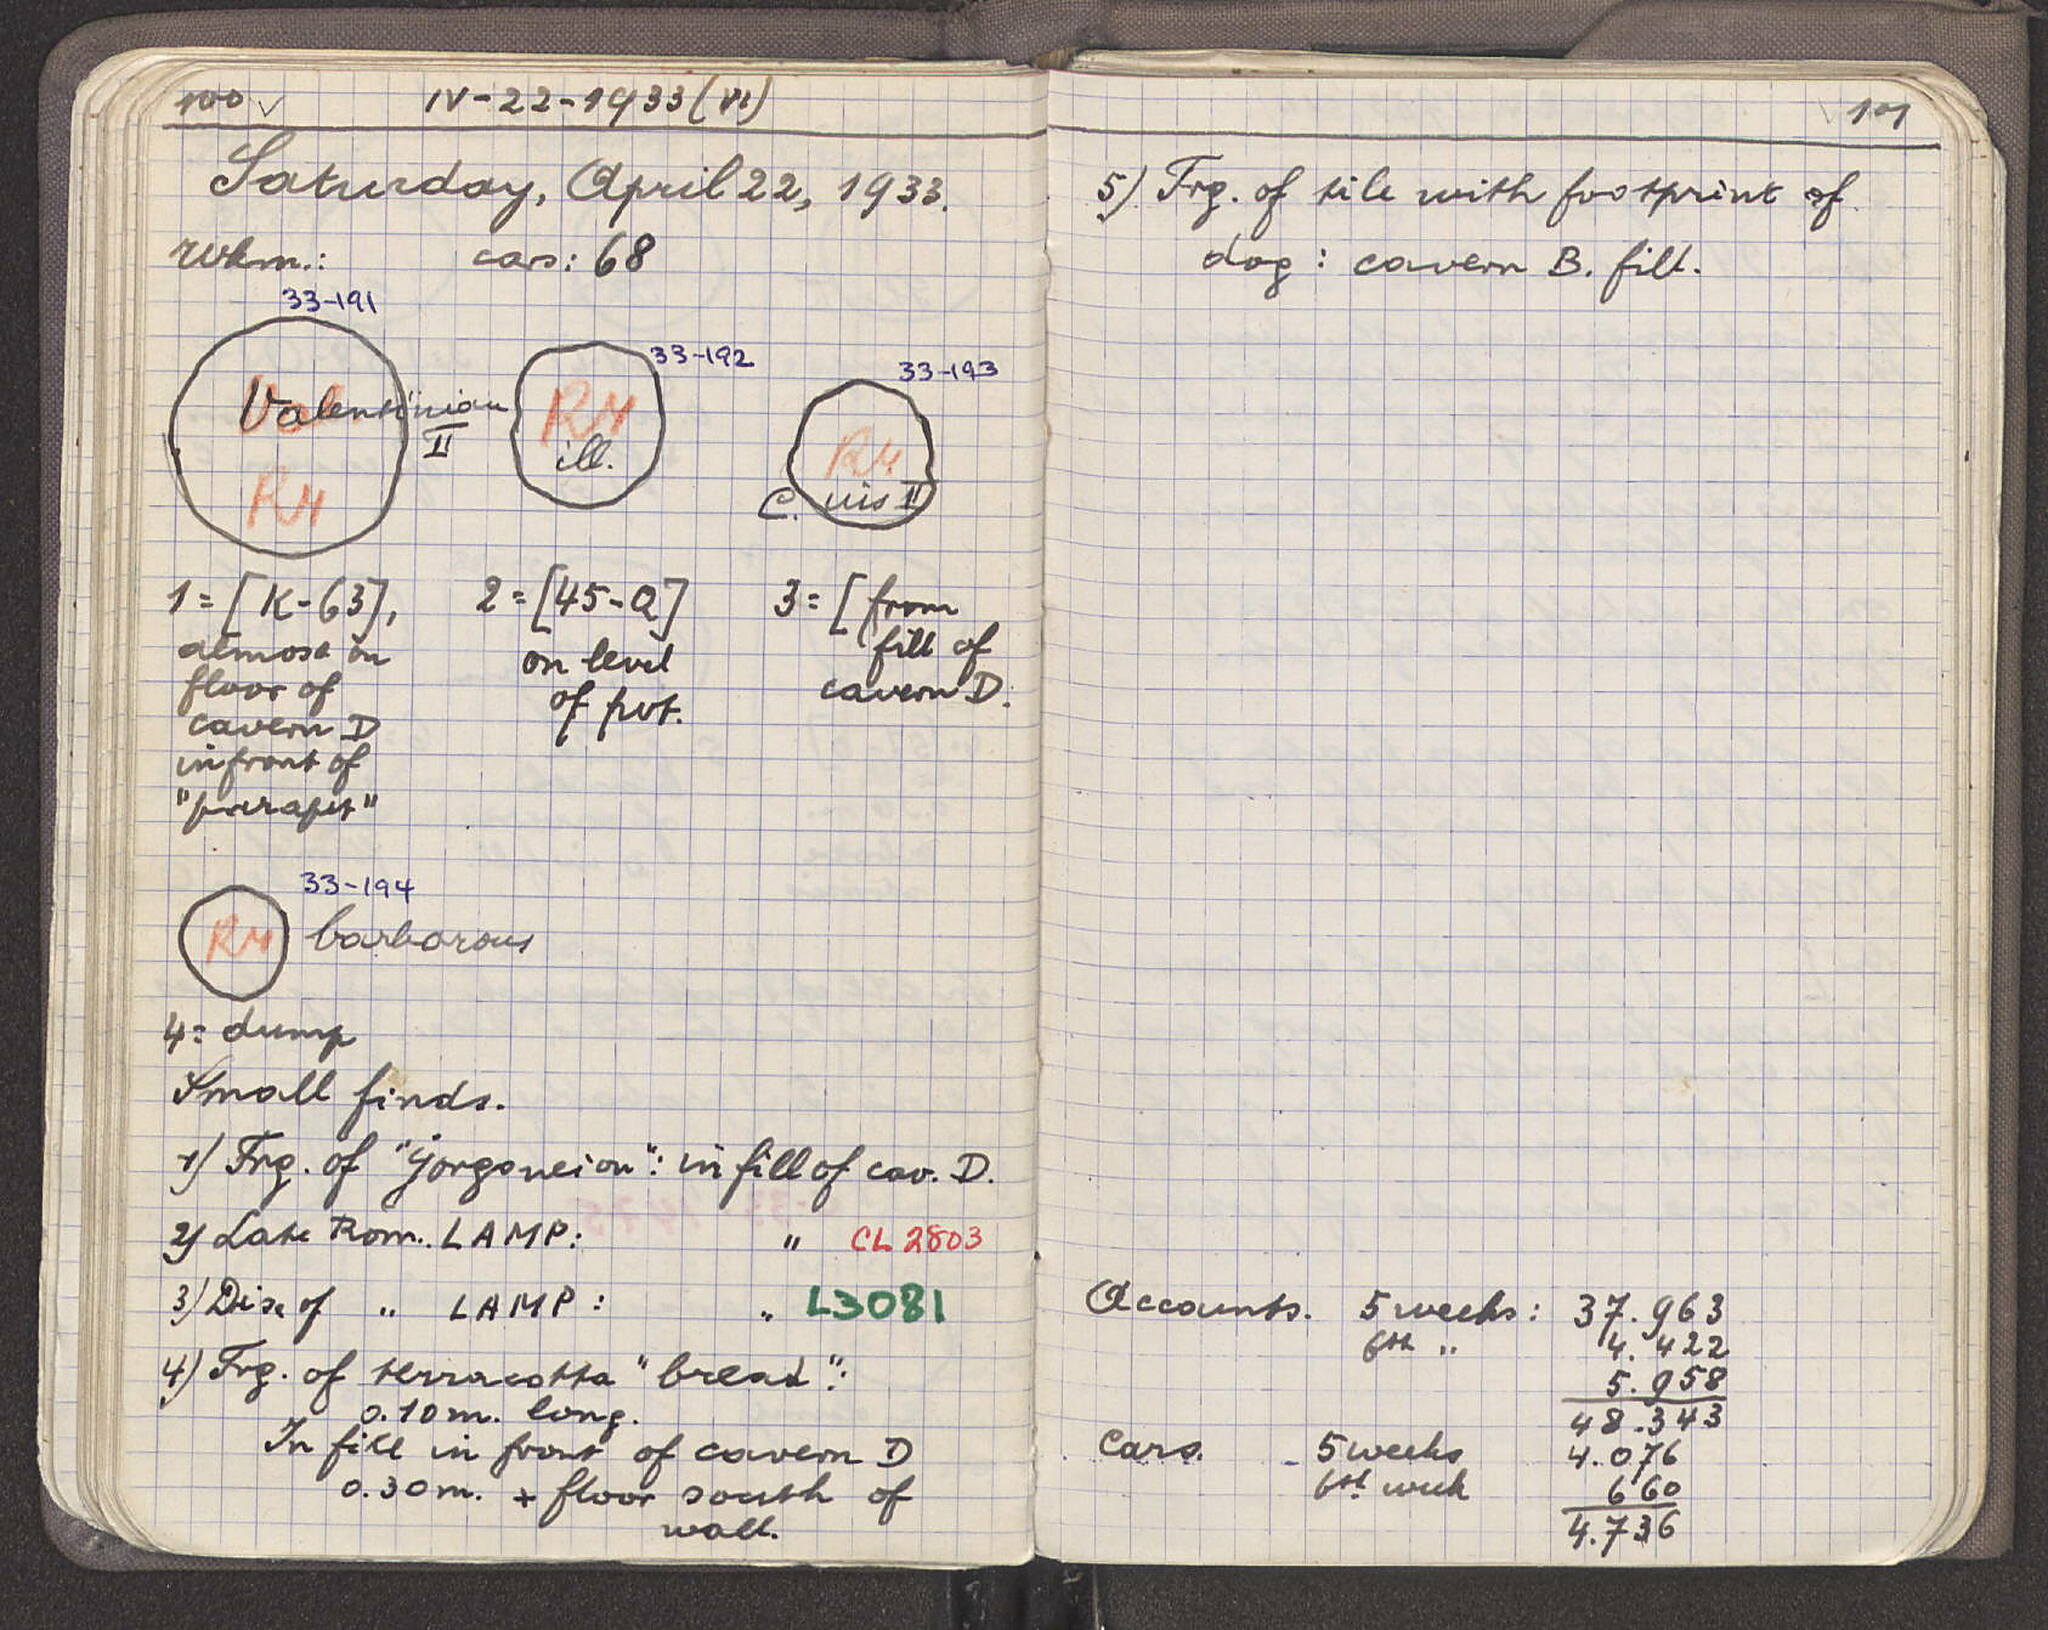 100 ✓ IV-22-1933 (VI)
Saturday, April 22, 1933.
Wkm.: cars: 68
33-191
33-192
33-193
Valentinian
II
R4
R4
ill.
R4
C. uis II
1 = [K-63],
almost on
floor of
cavern D
in front of
"parapet"
2 = [45-Q]
on level
of pot.
3 = [from
fill of
cavern D.
33-194
R4 barbarous
4 = dump
Small finds.
1) Frg. of "gorgoneion": in fill of cav. D.
2) Late Rom. LAMP: " CL 2803
3) Disc of " LAMP: " L3081
4) Frg. of terracotta "bread":
0.10 m. long.
In fill in front of cavern D
0.30 m. + floor south of
wall.
✓ 101
5) Frg. of tile with footprint of
dog: cavern B. fill.
Accounts. 5 weeks: 37.963
6th " 4.422
5.958
48.343
Cars. 5 weeks 4.076
6th week 660
4.736